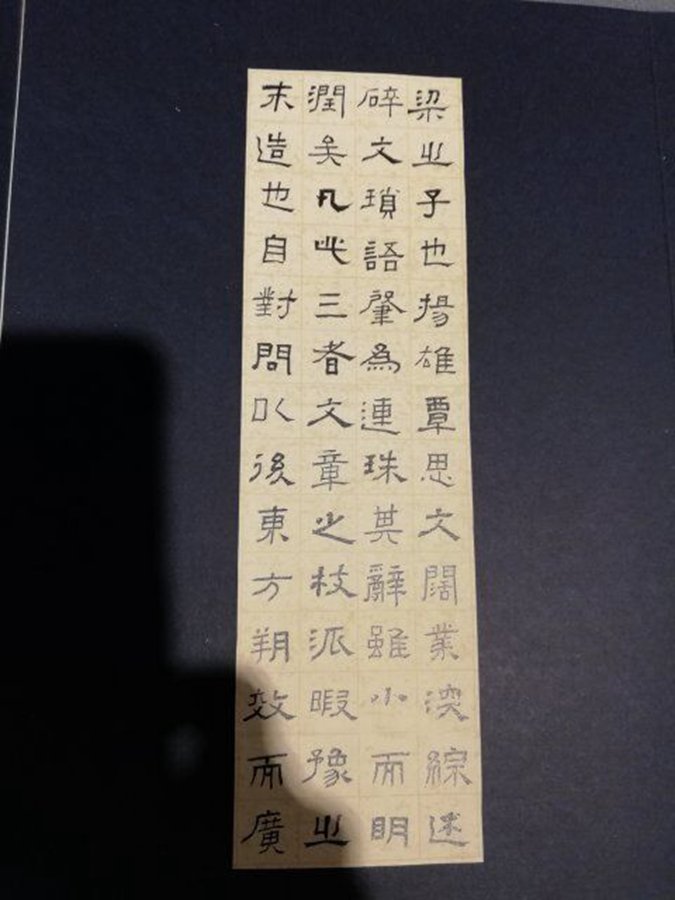 梁之子也揚雄覃思文闊業深綜述
碎文瑣語肇為連珠其辭雖小而明
潤矣凡此三者文章之枝派暇豫之
末造也自對問以後東方朔效而廣